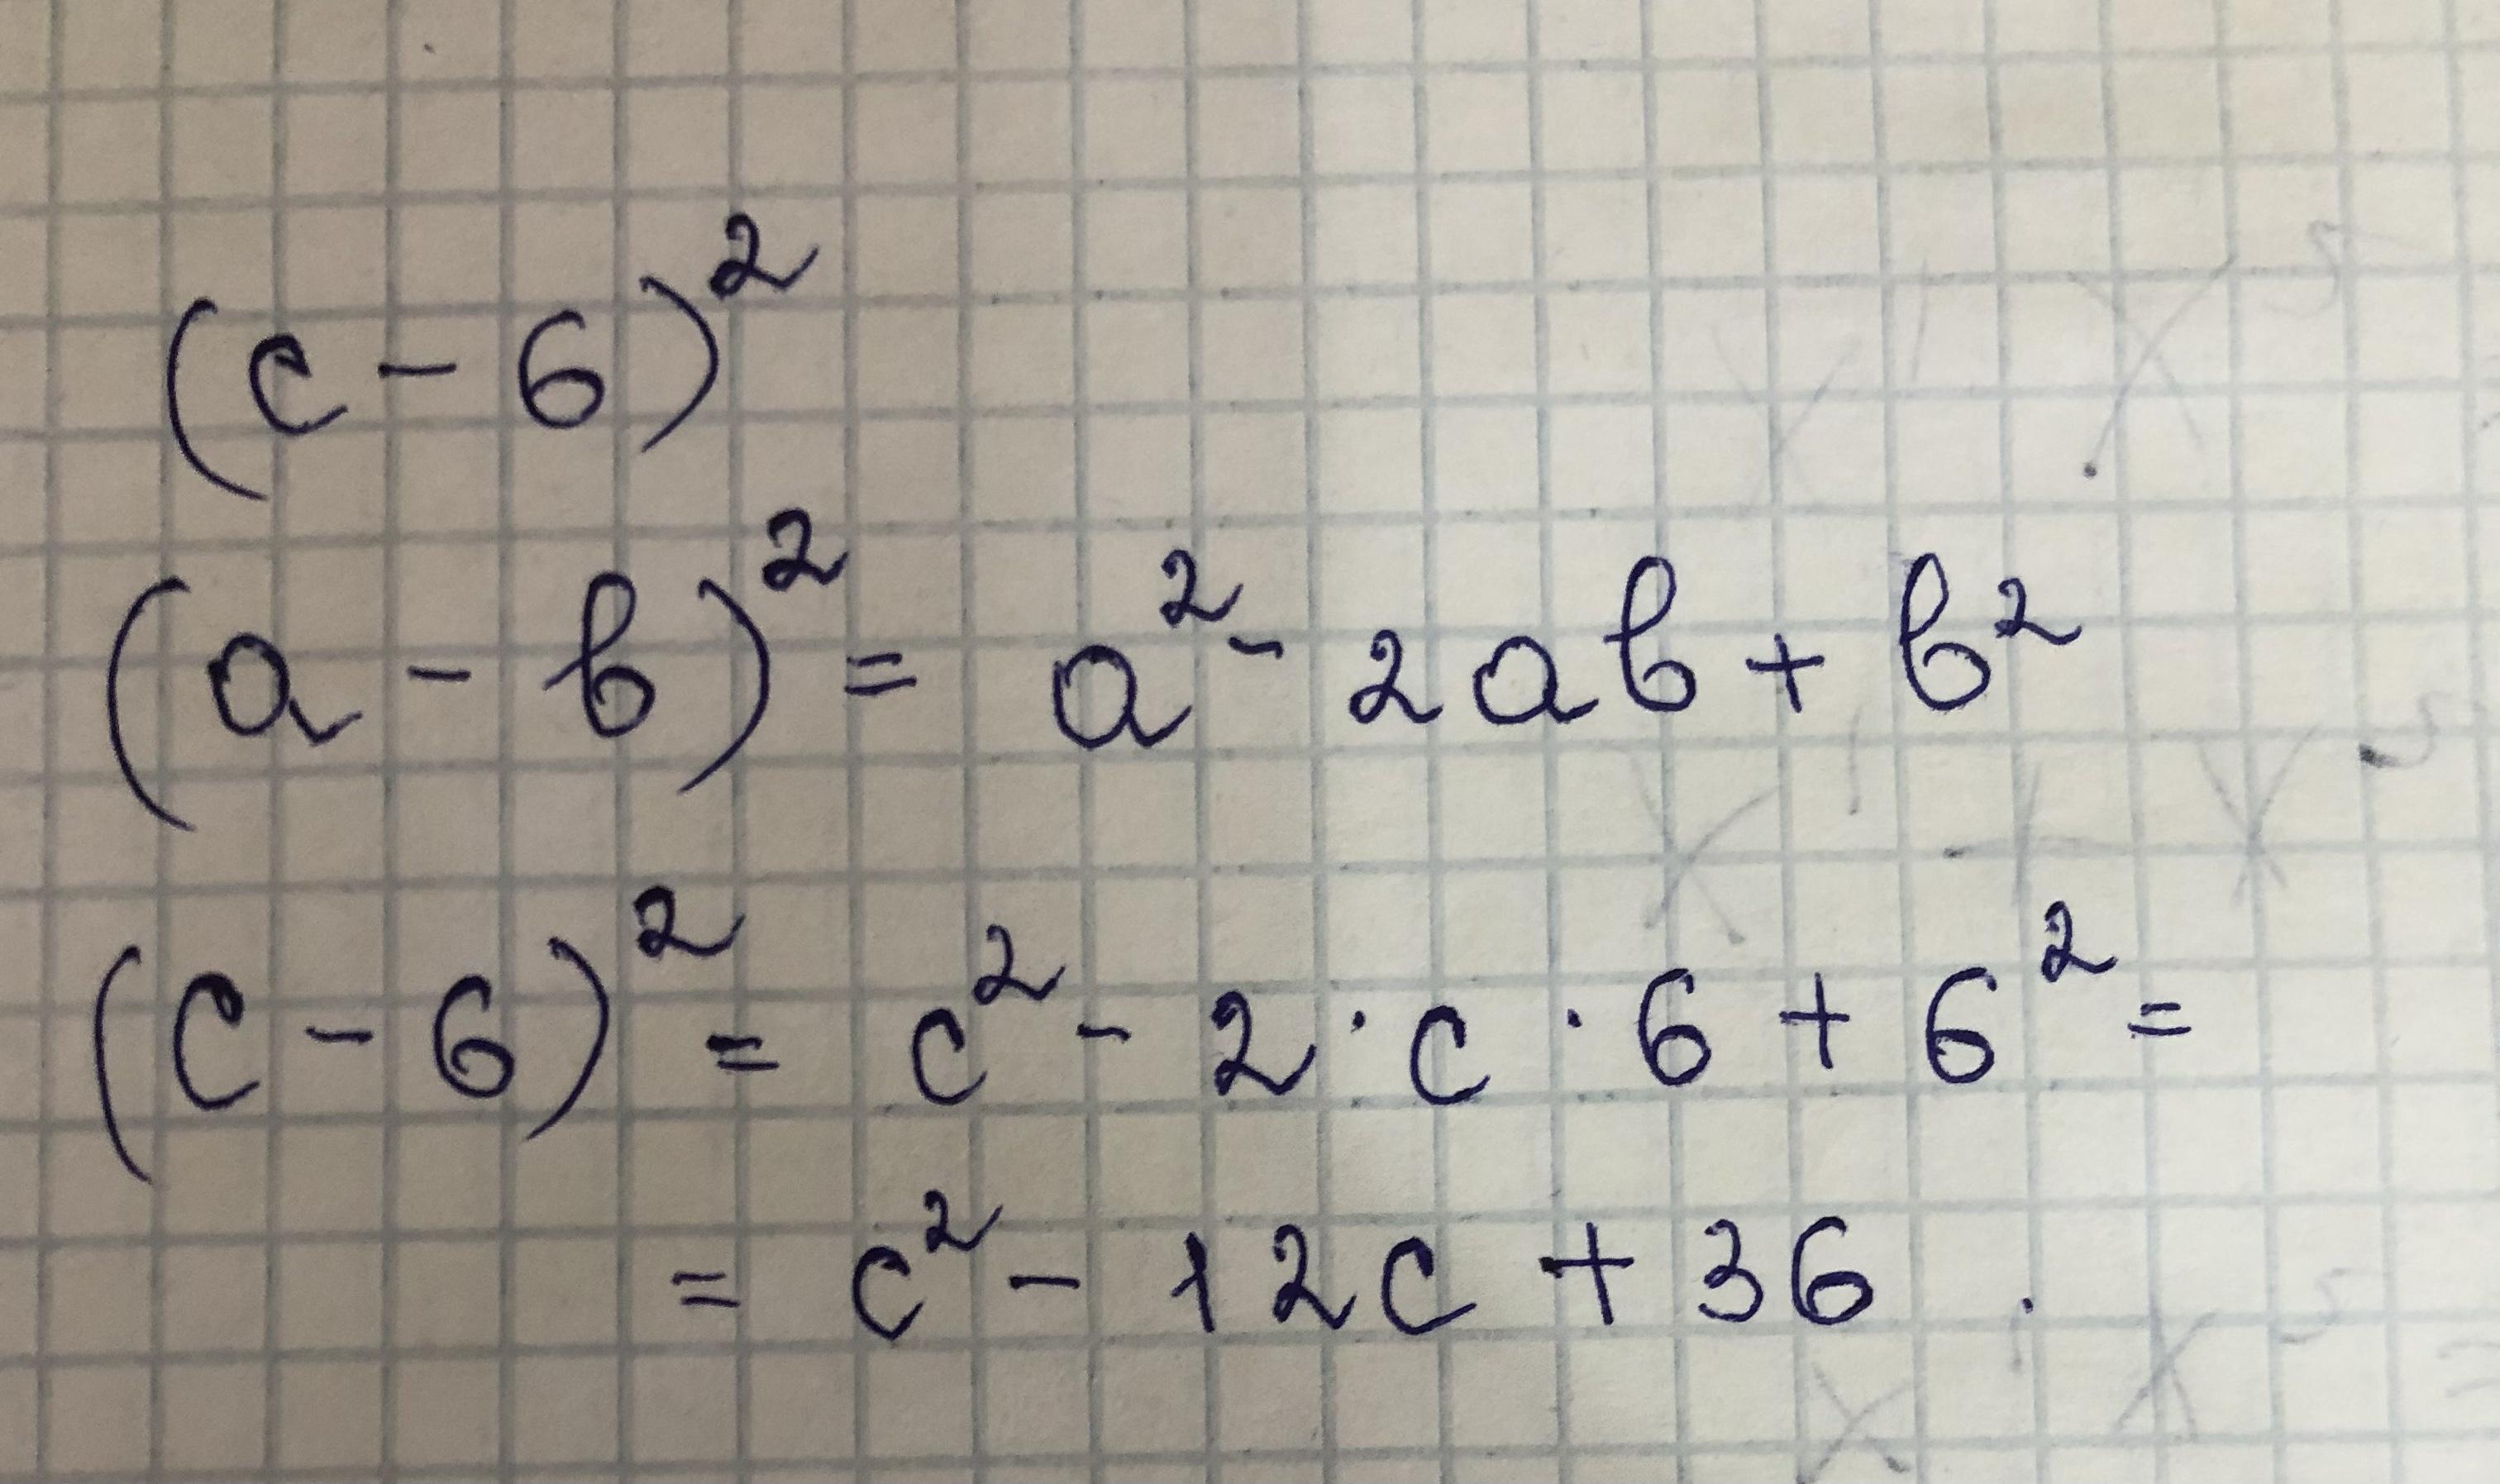 (c - 6)²
(a - b)² = a² - 2ab + b²
(c - 6)² = c² - 2 · c · 6 + 6² =
= c² - 12c + 36 .